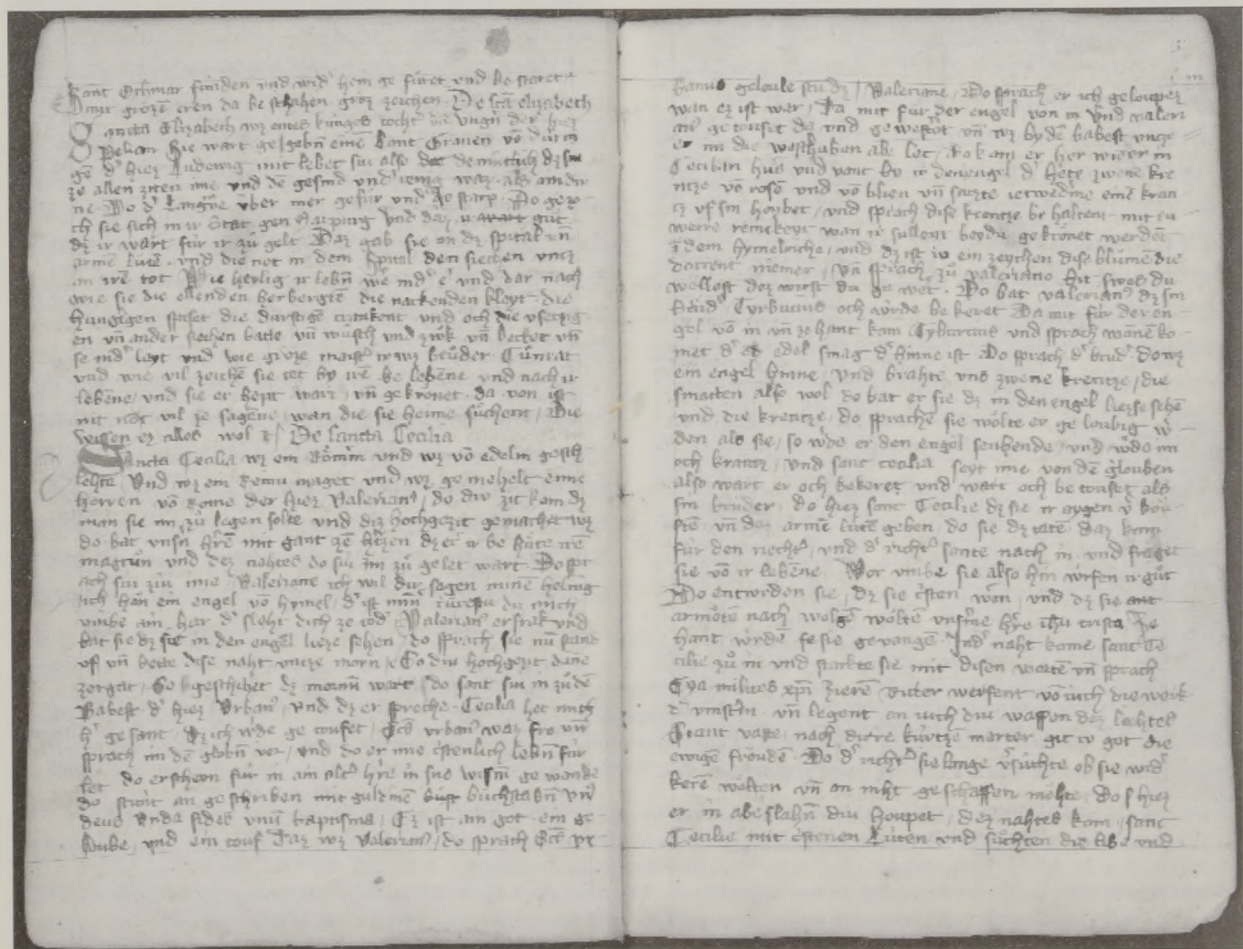 Sant Othmar funden vnd wid' hein ge füret vnd be staret
De scā elizabeth
Sancta Elizabeth wz eines künges tocht' vō vngn der hiez
Sie wart gelgebn einē Lant Grauen vō dürin
gē d' hiez Ludewig mit lebet siu also demütich dz siu
ze allen ziten ime vnd dē gesind vnd'tenig waz als ein dir
ne Do d' Langue vber mer gefur vnd do starp Do zo
ch sie sich in ir Stat gen Marpurg vnd daz ir gūt
dz ir wart für ir zů gelt Daz gab sie an dz spital vn̄
arme lüte vnd dienet in dem spital den siechen vntz
an irē tot Wie heilig ir lebn̄ wē ind' e vnd dar nach
wie sie die ellenden herbergten die nackenden kleyt die
hungigen spiset die durstigē trankent vnd och die vsetzig
en vn̄ ander siechen batte vn̄ wůsch vnd zwk vn̄ decket vn̄
se ind' leyt vnd wie groze maist' brůder Cůnrat
vnd wie vil zeichē sie tet by irē be lebēne vnd nach ir
lebēne vnd sie er hept wart vn̄ gekrönet da von ist
nit not vil ze sagēne wan die sie heime sůchent die
wissen ez alles wol De sancta Cecilia
Sancta Cecilia wz ein Römin vnd wz vō edelm gesch
lehte Vnd wz ein reinu maget vnd wz ge mehelt eime
herren vō Rome der hiez Valerian' do diu zit kam dz
man sie im zů legen solte vnd diz hochgezit gemachet wz
do bat vnsn hrē mit gantzē hzen dz er ir be hüte irē
magtům vnd dez nahtes do siu im zů gelet wart Do spr
ach siu zů ime Valeriane ich wil dir sagen minē heling
ich hān ein engel vō hymel d' ist min dir mich
vmbe ain har d' sleht dich ze tod Valerian' erschrak vnd
bat sie dz sie in den engel lieze sehen do sprach sie nū stand
vf vn̄ bette dise naht vntze morn So diu hochgezit danne
zergat So geschihet dz mornn wart do sant siu in zů dē
Babest d' hiez Vrban' vnd dz er spreche Cecilia het mich
h' ge sant dz ich wde ge toufet Scs vrban' waz fro vn̄
sprach im dē globn vor vnd do er ime cristenlich lebn für
let do erschein für in ain alt' h're in sne wissm ge wande
do stunt an ge schriben mit guldinē bůchstabn vn'
deus vnda fides vnū baptisma Ez ist ain got ein ge
loube vnd ein touf Daz wz Valerian' do sprach Scs vr
banus geloubestu dz Valeriane Do sprach er ich geloupez
wan ez ist war Da mit für der engel von in vnd valeri
an' ge toufet da vnd gewestot vn̄ wz by dē babest vntze
er im die westhuben abe let Do kam er her wider in
Ceciliun hus vnd vant by ir den engel d' hete zwene kre
ntze vō rosē vnd vō lilien vn̄ satzte ietwed'me einē kran
tz vf sin hoybet vnd sprach dise krentze be haltent mit ru
werre reinekeyt wan ir sullent beydu gekrönet werdēt
in dem hymelriche vnd dz ist iv ein zeychen dise blume die
dorrent niemer vn̄ sprach zů valeriano bit swes du
wellest dez wirst du ge wet Do bat valerian' dz sin
brůd' Tyburcius och würde be keret Da mit für der en
gel vō in vn̄ zehant kam Tyburcius vnd sprach wānē ko
met d' edel smag d' hinne ist Do sprach d' brud' do wz
ein engel hinne vnd brahte vns zwene krentze die
smacten also wol do bat er sie dz in den engel lieze sehē
vnd die krentze do sprachē sie wölte er ge loubig w
den als sie so wde er den engel sehende vnd wdo im
och krantz vnd sant cecilia seyt ime von dē glouben
also wart er och bekeret vnd wart och be toufet als
sin brůder do hiez sant Cecilie dz sie ir aygen v köf
ftē vn̄ dez armē lütē geben do sie dz tatē daz kam
für den riecht' vnd d' richt' sante nach in vnd fraget
sie vō ir lebēne War vmbe sie also hin würfen ir gůt
Do entwrten sie dz sie cristen wen vnd dz sie
armöten nach wolgē wolten vnsme hre ihu cristo Ze
hant wrde sie gevangē Ind' naht kome sant Ce
cilie zů in vnd starkte sie mit disen worte vn̄ sprach
Eya milites xpi Zierē Ritter werfent vō iuch die werk
d' vinst'n vn̄ legent an iuch diu waffen dez liehtes
nach dirre kurtzē marter git iv got die
ewigē fröuden Do d' richt' sie lange v'sůchte ob sie wid'
kerē wolten vn̄ an niht geschaffen mohte do hiez
er in abe slahn diu houpet dez nahtes kam sant
Cecilie mit cristenen Lüten vnd sůchten die libe vnd